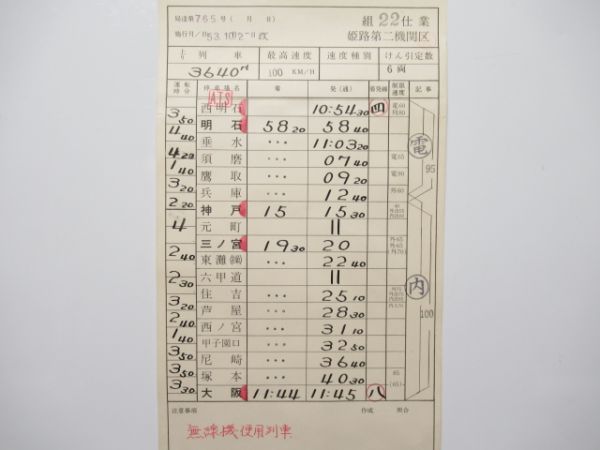 局達第765号(月 日)
施行月/日53.10月2日改
組22仕業
姫路第二機関区
列車 最高速度 速度種別 けん引定数
3640M 100 KM/H 6両
運転時分 停車場名 着 発(通) 着発線 制限速度 記事
ATS
西明石 10:54 30 四
3 50 明石 58 20 58 40
4 40 垂水 ・・・ 11:03 20
4 20 須磨 ・・・ 07 40
3 20 鷹取 ・・・ 09 20
3 20 兵庫 ・・・ 12 40
2 20 神戸 15 15 30
4 元町 ||
三ノ宮 19 30 20
2 40 東灘 ・・・ 22 40
六甲道 ||
2 30 住吉 ・・・ 25 10
3 20 芦屋 ・・・ 28 30
2 40 西ノ宮 ・・・ 31 10
1 40 甲子園口 ・・・ 32 50
3 50 尼崎 ・・・ 36 40
3 50 塚本 ・・・ 40 30
3 30 大阪 11:44 11:45 八
電
95
内
100
注意事項 作成 照合
無線機使用列車